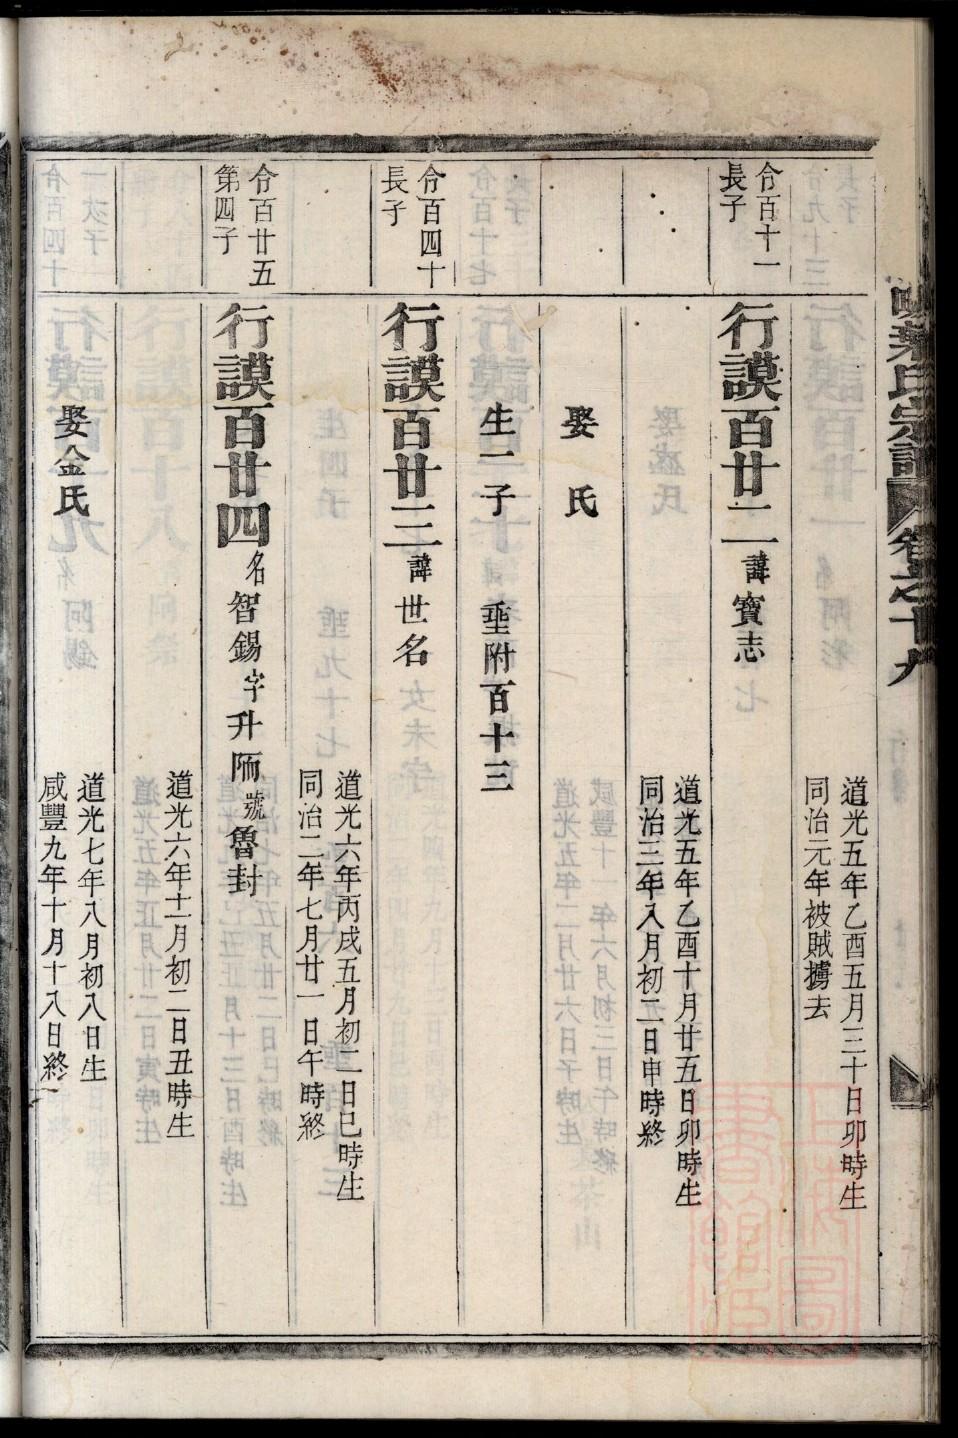 葉氏宗譜
卷之十九
道光五年乙酉五月三十日卯時生
同治元年被賊擄去
令百十一
長子
行謨百廿二諱寶志
道光五年乙酉十月廿五日卯時生
同治三年八月初二日申時終
娶 氏
生一子 垂附百十三
令百四十
長子
行謨百廿三諱世名
道光六年丙戌五月初二日巳時生
同治二年七月廿一日午時終
令百廿五
第四子
行謨百廿四名智錫字升陑號魯封
道光六年十二月初二日丑時生
娶金氏
道光七年八月初八日生
咸豐九年十月十八日終